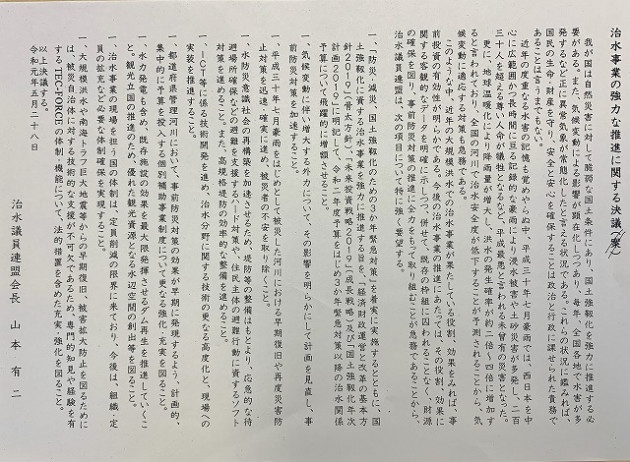 治水事業の強力な推進に関する決議(案)
我が国は自然災害に対して脆弱な国土条件にあり、国土強靱化を強力に推進する必
要がある。また、気候変動による影響が顕在化しつつあり、毎年、全国各地で水害が多
発するなど正に異常気象が常態化したと言える状況である。これらの状況に鑑みれば、
国民の生命・財産を守り、安全と安心を確保することは政治と行政に課せられた責務で
あることは言うまでもない。
近年の度重なる水害の記憶も覚めやらぬ中、平成三十年七月豪雨では、西日本を中
心に広範囲かつ長時間に亘る記録的な豪雨により、浸水被害や土砂災害が多発し、二百
三十人を超える尊い人命が犠牲となるなど、平成最悪と言われる未曾有の災害となった。
更に、地球温暖化により降雨量が増大し、洪水の発生確率が約二倍～四倍に増加す
ると言われており、全国の河川で治水安全度が低下することが予測されることから、気
候変動に適応する対策も急務である。
このような中、近年の大規模洪水での治水事業が果たしている役割、効果をみれば、事
前投資の有効性が明らかである。今後の治水事業の推進にあたっては、その役割、効果に
関する客観的なデータを明確に示しつつ、併せて、既存の枠組に囚われることなく、財源
の確保を図り、事前防災対策の推進に全力をもって取り組むことが急務であることから、
治水議員連盟は、次の項目について特に強く要望する。
一、「防災、減災、国土強靱化のための3か年緊急対策」を着実に実施するとともに、国
土強靱化に資する治水事業を強力に推進する旨を、「経済財政運営と改革の基本方
針2019」(骨太方針)、「未来投資戦略2019」(成長戦略)及び「国土強靱化年次
計画2019」に明記し、令和二年度予算をはじめ3か年緊急対策以降の治水関係
予算について飛躍的に増額させること。
一、気候変動に伴い増大する外力について、その影響を明らかにして計画を見直し、事
前防災対策を加速すること。
一、平成三十年七月豪雨をはじめとして被災した河川における早期復旧や再度災害防
止対策を迅速・確実に進め、被災者の不安を取り除くこと。
一、水防災意識社会の再構築を加速させるため、堤防等の整備はもとより、応急的な待
避場所確保などの避難を支援するハード対策や、住民主体の避難行動に資するソフト
対策を進めること。また、高規格堤防の効率的な整備を進めること。
一、ICT等に係る技術開発を進め、治水分野に関する技術の更なる高度化と、現場への
実装を推進すること。
一、都道府県管理河川において、事前防災対策の効果が早期に発現するよう、計画的、
集中的に予算を投入する個別補助事業制度について更なる強化・充実を図ること。
一、水力発電も含め、既存施設の効果を最大限発揮させるダム再生を推進していくこ
と。観光立国の推進のため、優れた観光資源となる水辺空間の創出等を図ること。
一、治水事業の現場を担う国の体制は、定員削減の限界に来ており、今後は、組織・定
員の拡充など必要な体制確保を実現すること。
一、大規模洪水や南海トラフ巨大地震等からの早期復旧、被害拡大防止を図るために
は、被災自治体に対する技術的な支援が不可欠であるため、専門的知見や経験を有
する「TEC-FORCE」の体制・機能について、法的措置を含めた充実・強化を図ること。
以上決議する。
令和元年五月二十八日
治水議員連盟会長　山本有二